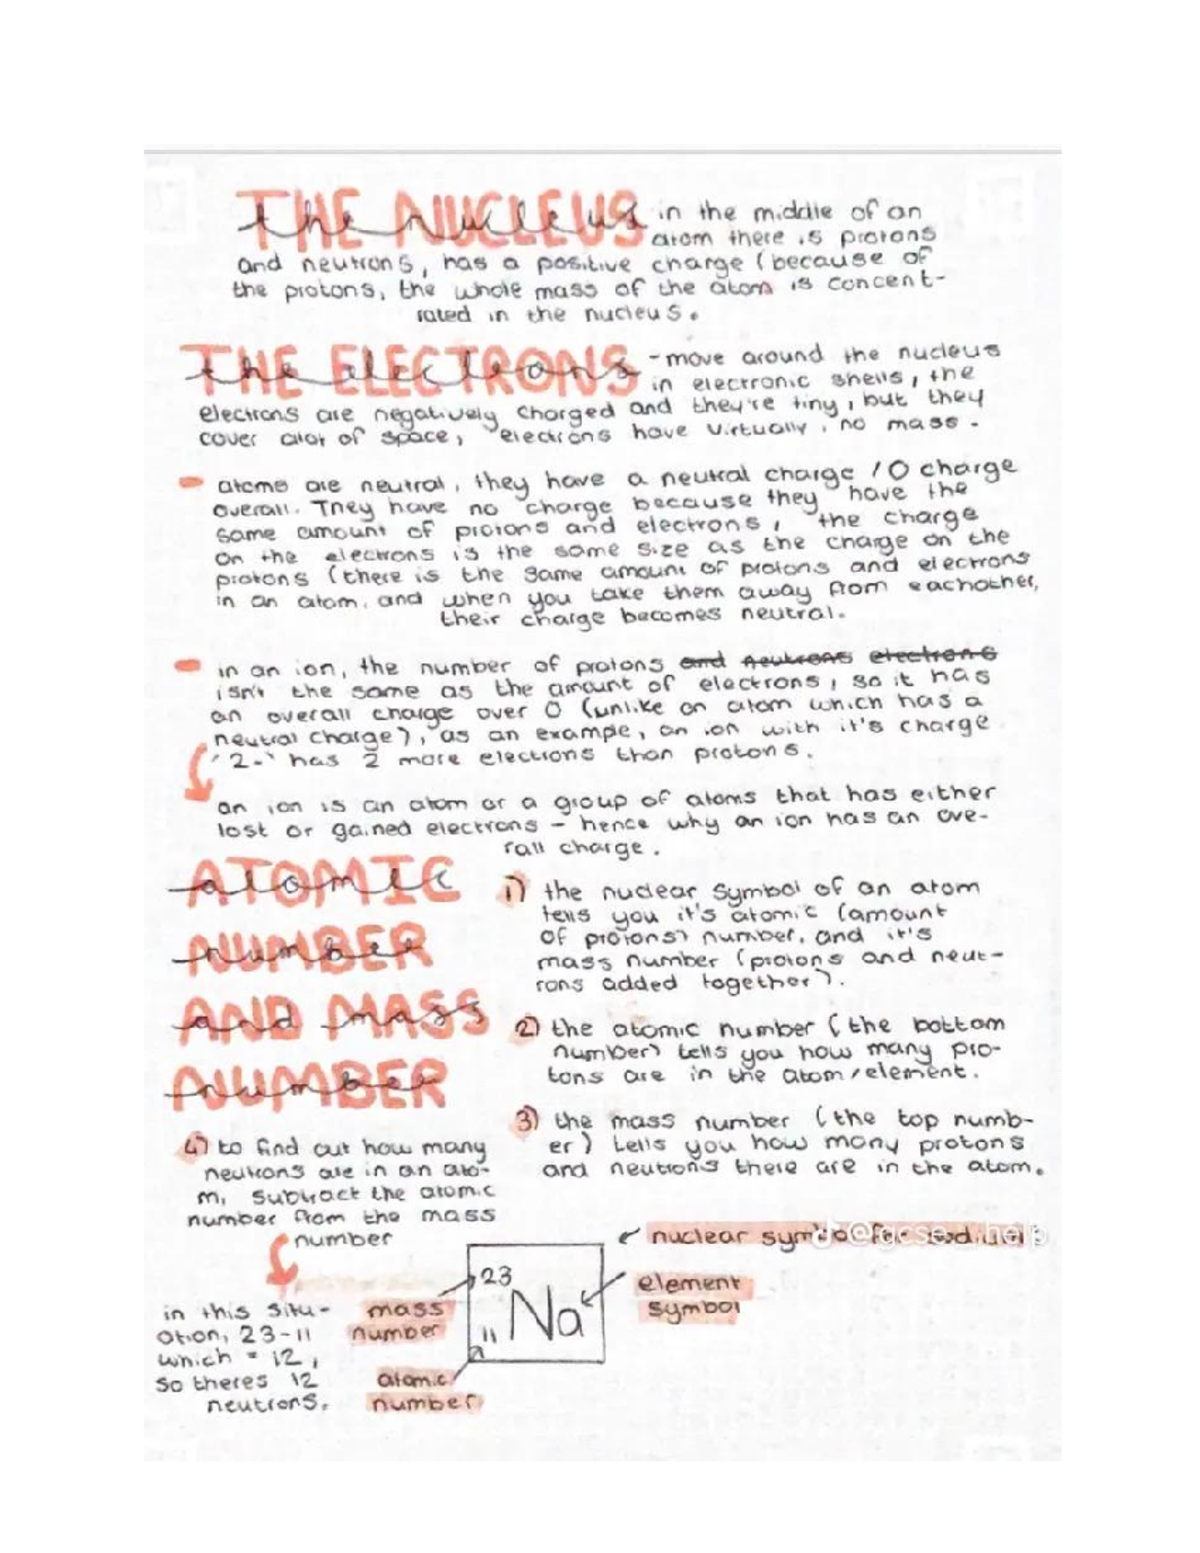 THE NUCLEUS
the nucleus
in the middle of an
atom there is protons
and neutrons, has a positive charge (because of
the protons, the whole mass of the atom is concent-
rated in the nucleus.
THE ELECTRONS
the electrons
- move around the nucleus
in electronic shells, the
electrons are negatively charged and they're tiny, but they
cover alot of space, electrons have virtually, no mass.
atoms are neutral, they have a neutral charge / 0 charge
overall. They have no charge because they have the
same amount of protons and electrons, the charge
on the electrons is the same size as the charge on the
protons (there is the same amount of protons and electrons
in an atom, and when you take them away from eachother,
their charge becomes neutral.
in an ion, the number of protons and neutrons electrons
isn't the same as the amount of electrons, so it has
an overall charge over 0 (unlike an atom which has a
neutral charge), as an example, an ion with it's charge
'2-' has 2 more electrons than protons.
an ion is an atom or a group of atoms that has either
lost or gained electrons - hence why an ion has an ove-
rall charge.
ATOMIC
atomic
NUMBER
number
AND MASS
and mass
NUMBER
number
1) the nuclear symbol of an atom
tells you it's atomic (amount
of protons) number, and it's
mass number (protons and neut-
rons added together).
2) the atomic number (the bottom
number) tells you how many pro-
tons are in the atom/element.
3) the mass number (the top numb-
er) tells you how many protons
and neutrons there are in the atom.
4) to find out how many
neutrons are in an ato-
m, subtract the atomic
number from the mass
number
in this situ-
ation, 23-11
which = 12,
so theres 12
neutrons.
nuclear symbol for sodium
@igcse_help
23
Na
11
mass
number
atomic
number
element
symbol